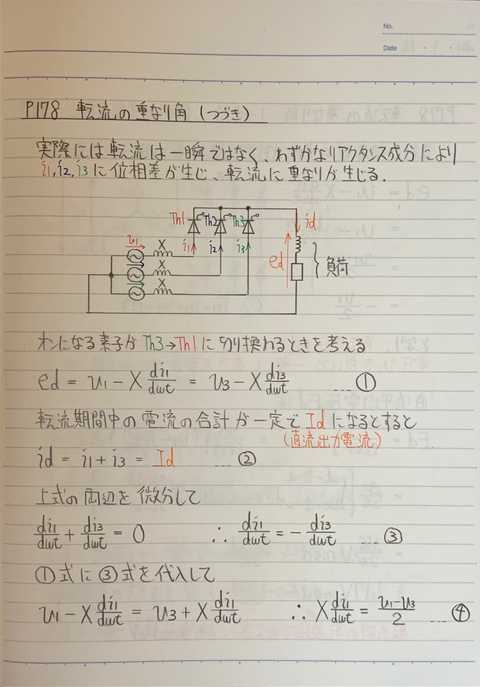 No.
Date
P178 転流の重なり角 (つづき)
実際には転流は一瞬ではなく、わずかなリアクタンス成分により
i1, i2, i3 に位相差が生じ、転流に重なりが生じる.
Th1 Th2 Th3 id
v1 X i1 i2 i3 ed 負荷
X
X
オンになる素子が Th3→Th1 に切り換わるときを考える
ed = v1 - X di1/dwt = v3 - X di3/dwt ①
転流期間中の電流の合計が一定で Id になるとすると
(直流出力電流)
id = i1 + i3 = Id ②
上式の両辺を微分して
di1/dwt + di3/dwt = 0 ∴ di1/dwt = - di3/dwt ③
①式に③式を代入して
v1 - X di1/dwt = v3 + X di1/dwt ∴ X di1/dwt = v1-v3/2 ④